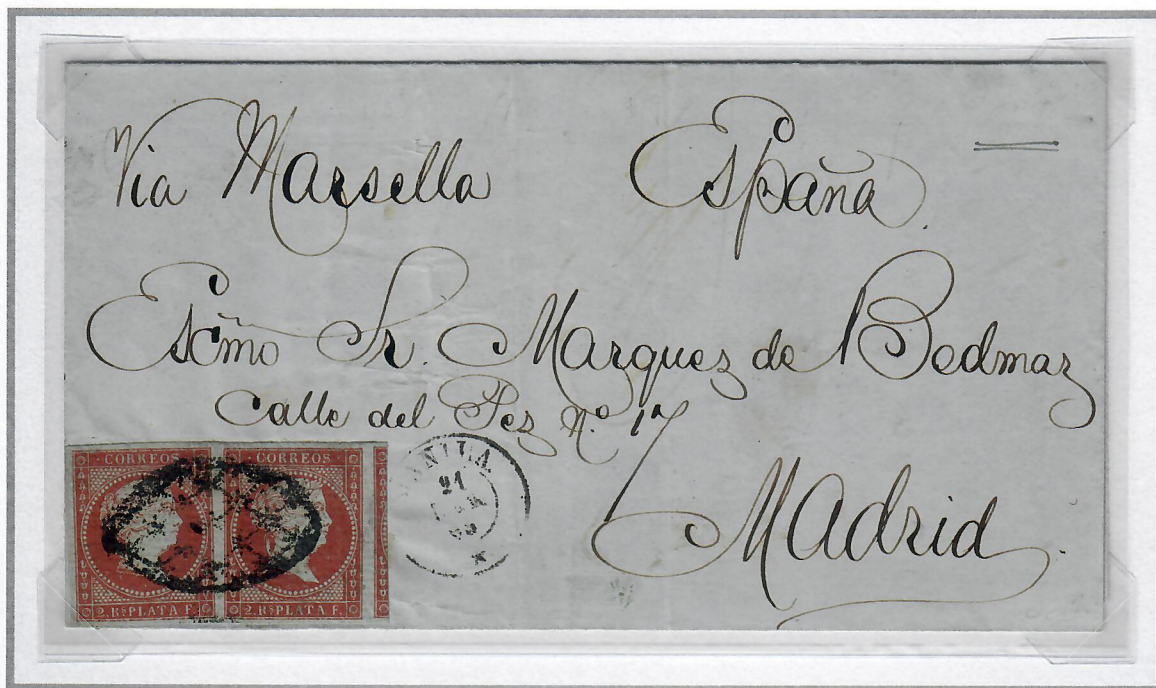 Via Marsella España.
Escmo Sr. Marquez de Bedmar
Calle del Pez N.º 17
Madrid.
CORREOS CORREOS
2 Rs PLATA F. 2 Rs PLATA F.
MANILA
21